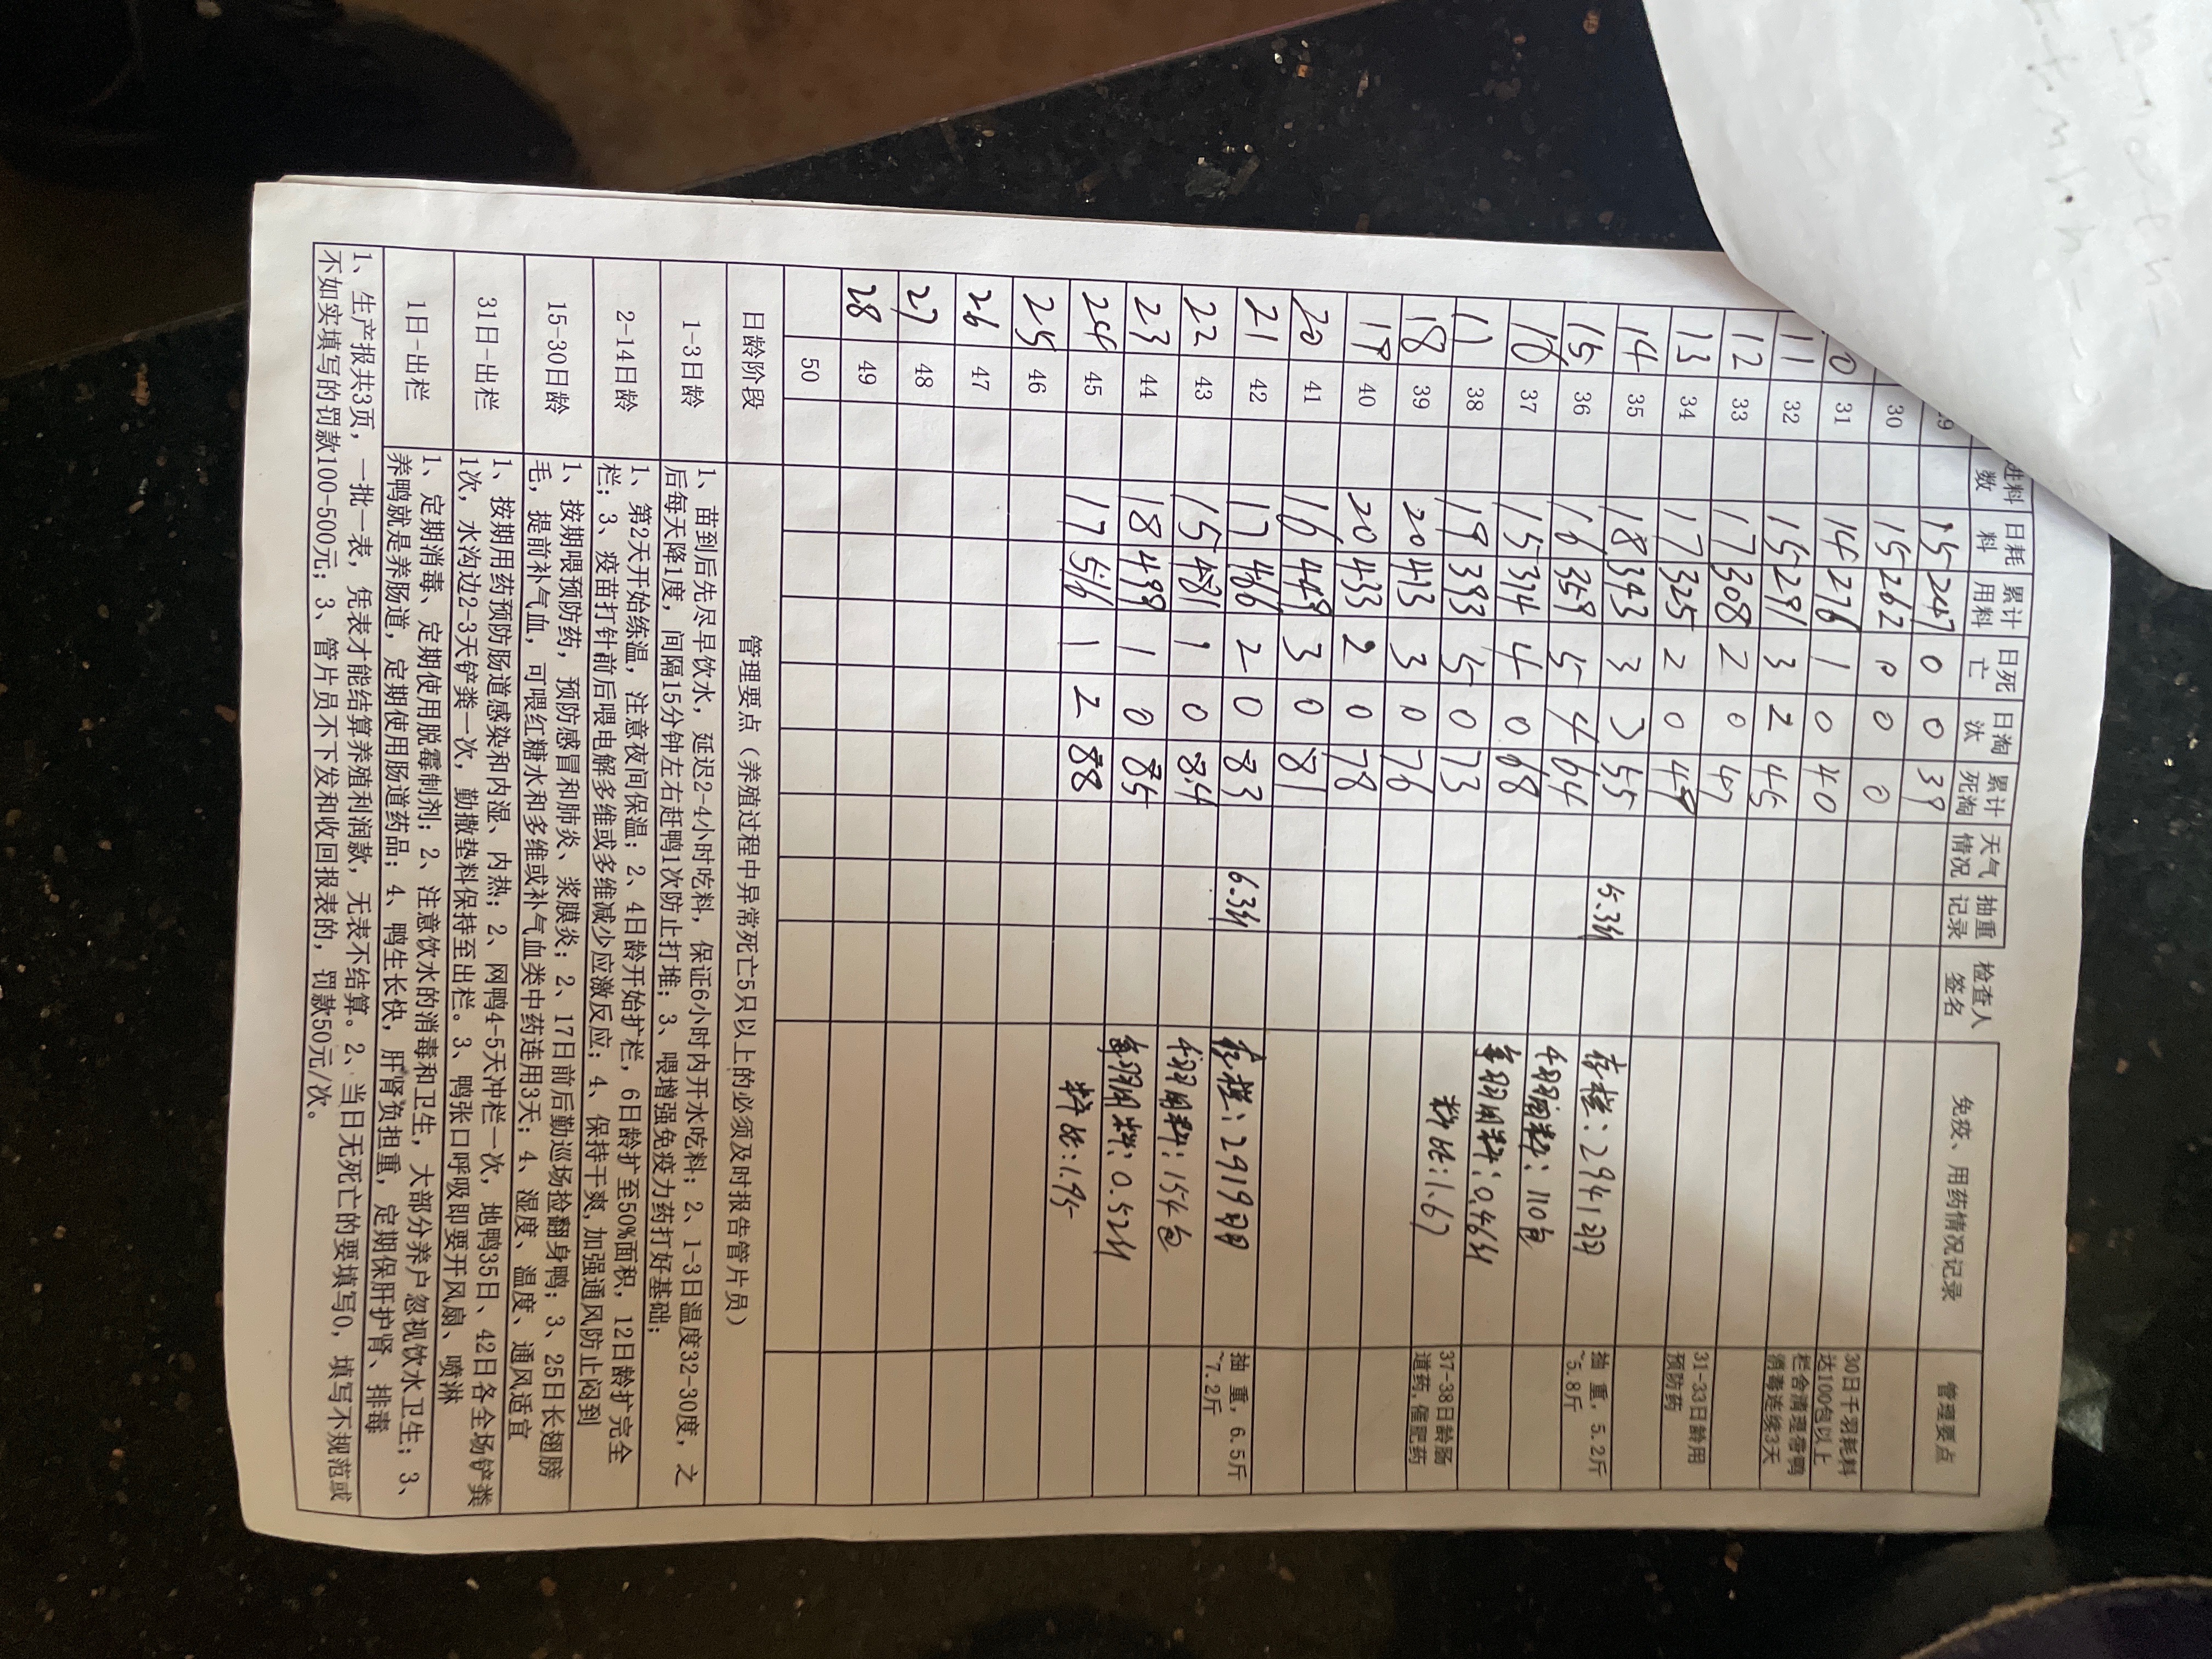 进料数 日耗料 累计用料 日死亡 日淘汰 累计死淘 天气情况 抽重记录 检查人签名 免疫、用药情况记录 管理要点
15 247 0 0 39
30 15 262 0 0 0
0 31 14 276 1 0 40 30日千羽耗料达100包以上
11 32 15 291 3 2 45 栏舍清理带鸭消毒连续3天
12 33 17 308 2 0 47
13 34 17 325 2 0 49 31-33日龄用预防药
14 35 18 343 3 3 55 5.3斤
15 36 16 359 5 4 64 存栏:2941羽 抽重,5.2斤~5.8斤
16 37 15 374 4 0 68 4羽用料:110包
17 38 19 393 5 0 73 每羽用料:0.46斤
18 39 20 413 3 0 76 料比:1.67 37-38日龄肠道药,催肥药
19 40 20 433 2 0 78
20 41 16 449 3 0 81
21 42 17 466 2 0 83 6.3斤 存栏:2919羽 抽重,6.5斤~7.2斤
22 43 15 481 1 0 84 4羽用料:154包
23 44 18 499 1 0 85 每羽用料:0.52斤
24 45 17 516 1 2 88 料比:1.95
25 46
26 47
27 48
28 49
50
日龄阶段 管理要点(养殖过程中异常死亡5只以上的必须及时报告管片员)
1-3日龄 1、苗到后先尽早饮水,延迟2-4小时吃料,保证6小时内开水吃料;2、1-3日温度32-30度,之
后每天降1度,间隔15分钟左右赶鸭1次防止打堆;3、喂增强免疫力药打好基础;
2-14日龄 1、第2天开始练温,注意夜间保温;2、4日龄开始扩栏,6日龄扩至50%面积,12日龄扩完全
栏;3、疫苗打针前后喂电解多维或多维减少应激反应;4、保持干爽,加强通风防止闷到
15-30日龄 1、按期喂预防药,预防感冒和肺炎、浆膜炎;2、17日前后勤巡场捡翻身鸭;3、25日长翅膀
毛,提前补气血,可喂红糖水和多维或补气血类中药连用3天;4、湿度、温度、通风适宜
31日-出栏 1、按期用药预防肠道感染和内湿、内热;2、网鸭4-5天冲栏一次,地鸭35日、42日各全场铲粪
1次,水沟边2-3天铲粪一次,勤撒垫料保持至出栏。3、鸭张口呼吸即要开风扇、喷淋
1日-出栏 1、定期消毒、定期使用脱霉制剂;2、注意饮水的消毒和卫生,大部分养户忽视饮水卫生;3、
养鸭就是养肠道,定期使用肠道药品;4、鸭生长快,肝肾负担重,定期保肝护肾、排毒
1、生产报共3页,一批一表,凭表才能结算养殖利润款,无表不结算。2、当日无死亡的要填写0,填写不规范或
不如实填写的罚款100-500元;3、管片员不下发和收回报表的,罚款50元/次。